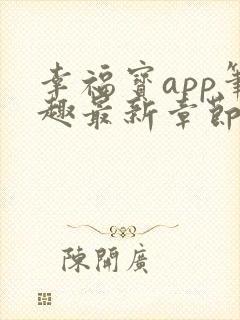 幸福寶app筆
趣最新章節
陳開廣